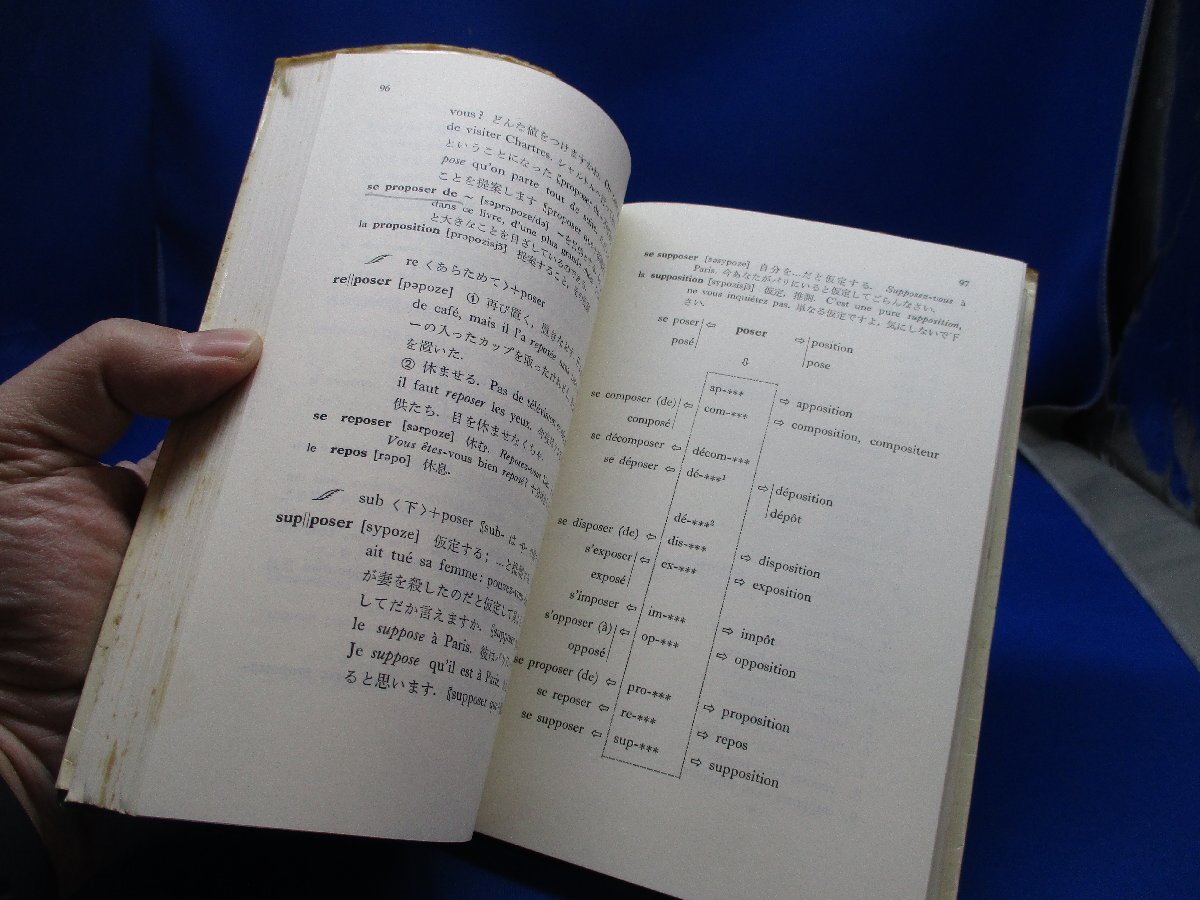 96
vous? どんな値をつけますか
de visiter Chartres.
ということになった ¶proposer de
pose qu'on parte tout de suite.
ことを提案します ¶proposer que
se proposer de ~ [səprɔpoze/də]
dans ce livre, d'une plus grande
と大きなことを目ざしているのである
la proposition [prɔpozisjɔ̃] 提案すること,
re 〈あらためて〉+poser
re||poser [rəpoze] ① 再び置く, 置きなおす
de café, mais il l'a reposée sans
ーの入ったカップを取ったけれど
を置いた.
② 休ませる. Pas de télévision
il faut reposer les yeux.
供たち. 目を休ませなくちゃ
se reposer [sərpoze] 休む. Reposez-vous
Vous êtes-vous bien reposé?
le repos [rəpo] 休息.
sub 〈下〉+poser ¶sub- は
sup||poser [sypoze] 仮定する; …と
ait tué sa femme; pouvez-vous
が妻を殺したのだと仮定して
してだか言えますか. ¶supposer
le suppose à Paris. 彼はパリに
Je suppose qu'il est à Paris.
ると思います. ¶supposer que
97
se supposer [səsypoze] 自分を…だと仮定する. Supposez-vous à
Paris. 今あなたがパリにいると仮定してごらんなさい.
la supposition [sypozisjɔ̃] 仮定, 推測. C'est une pure supposition,
ne vous inquiétez pas. 単なる仮定ですよ, 気にしないで下
さい.
se poser ⇦ poser ⇨ position
posé pose
⇩
ap-*** ⇨ apposition
se composer (de) ⇦ com-*** ⇨ composition, compositeur
composé
se décomposer ⇦ décom-***
se déposer ⇦ dé-***¹ ⇨ déposition
dépôt
dé-***²
se disposer (de) ⇦ dis-*** ⇨ disposition
s'exposer ⇦ ex-*** ⇨ exposition
exposé
s'imposer ⇦ im-*** ⇨ impôt
s'opposer (à) ⇦ op-*** ⇨ opposition
opposé
se proposer (de) ⇦ pro-*** ⇨ proposition
se reposer ⇦ re-*** ⇨ repos
se supposer ⇦ sup-*** ⇨ supposition